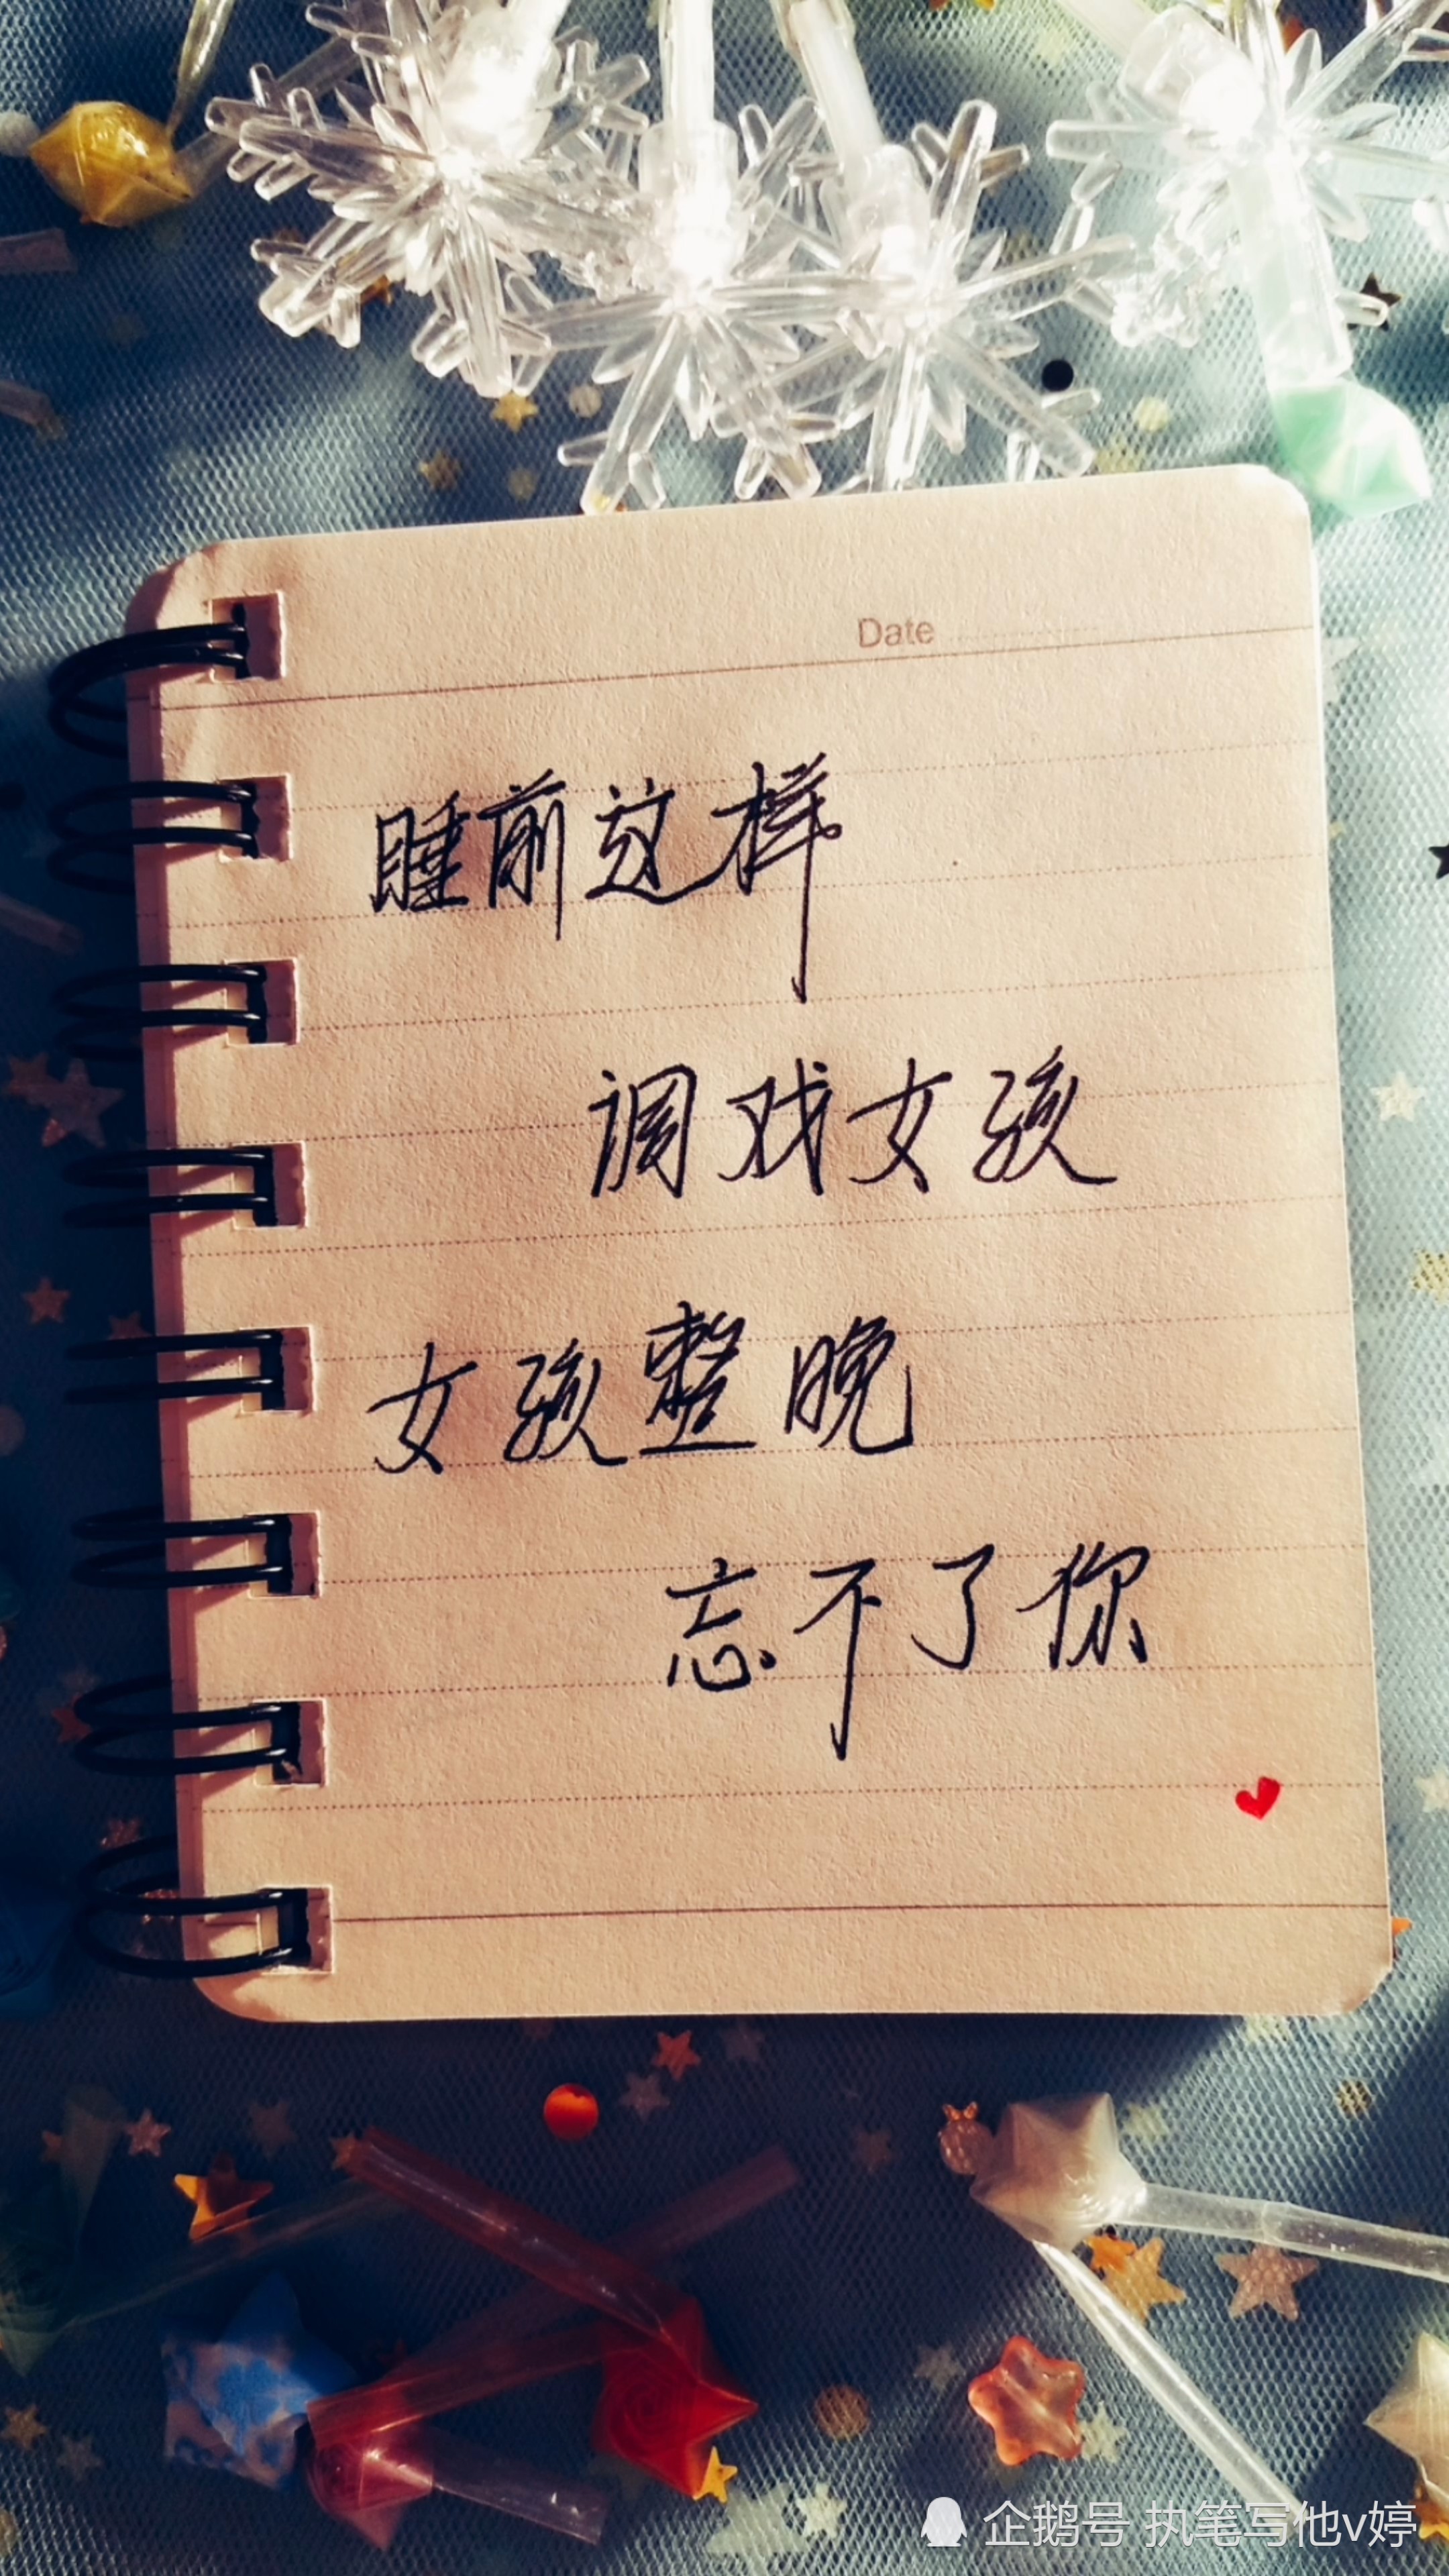 Date
睡前这样
调戏女孩
女孩整晚
忘不了你
企鹅号 执笔写他v婷